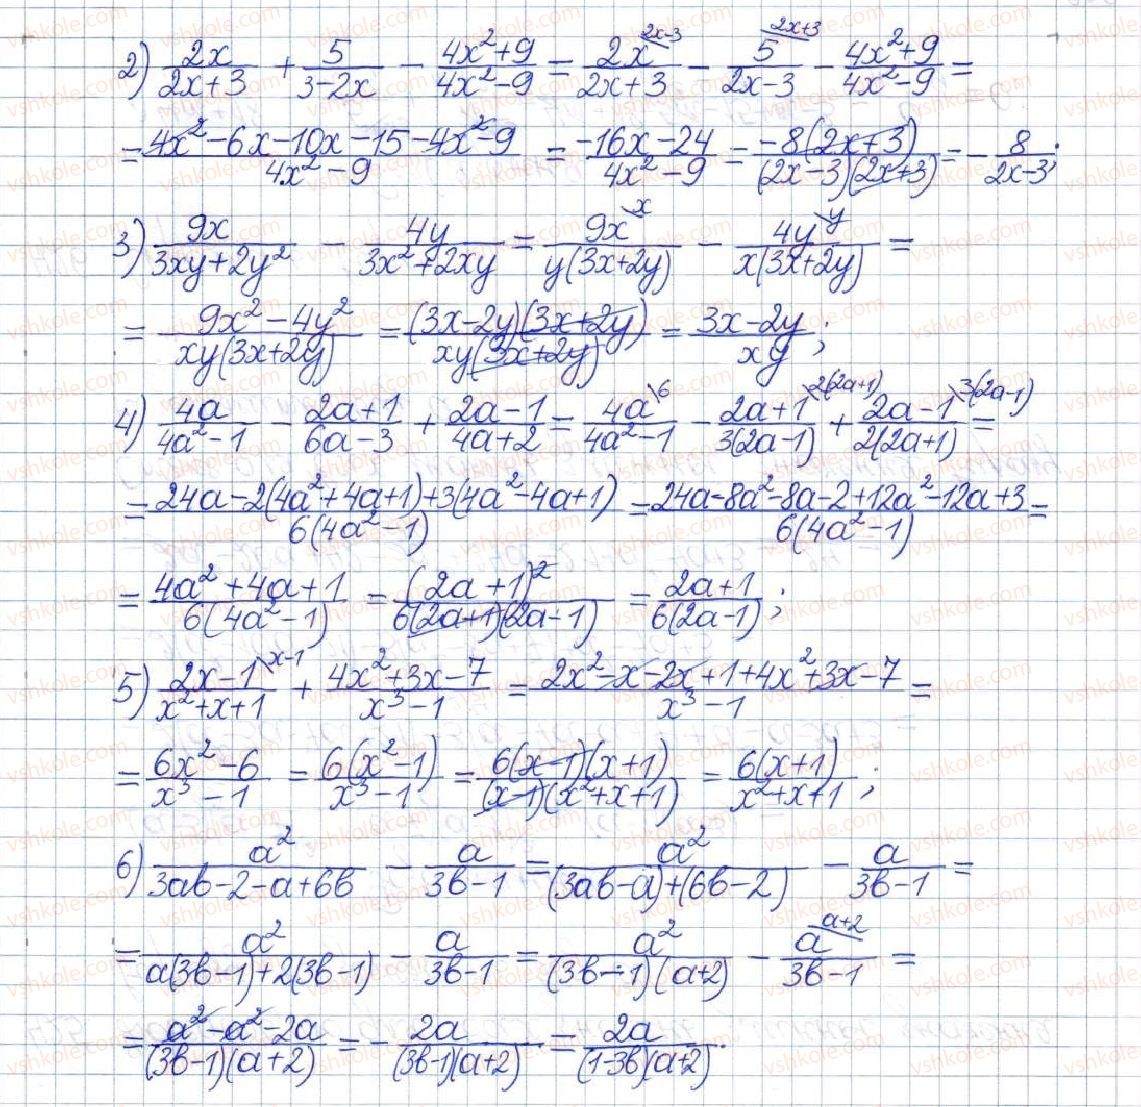 2) 2x/(2x+3) + 5/(3-2x) - (4x²+9)/(4x²-9) = 2x^{\2x-3}/(2x+3) - 5^{\2x+3}/(2x-3) - (4x²+9)/(4x²-9) =
= (4x²-6x-10x-15-4x²-9)/(4x²-9) = (-16x-24)/(4x²-9) = -8(2x+3)/((2x-3)(2x+3)) = - 8/(2x-3);
3) 9x/(3xy+2y²) - 4y/(3x²+2xy) = 9x^{\x}/(y(3x+2y)) - 4y^{\y}/(x(3x+2y)) =
= (9x²-4y²)/(xy(3x+2y)) = (3x-2y)(3x+2y)/(xy(3x+2y)) = (3x-2y)/(xy);
4) 4a/(4a²-1) - (2a+1)/(6a-3) + (2a-1)/(4a+2) = 4a^{\6}/(4a²-1) - (2a+1)^{\2(2a+1)}/(3(2a-1)) + (2a-1)^{\3(2a-1)}/(2(2a+1)) =
= (24a-2(4a²+4a+1)+3(4a²-4a+1))/(6(4a²-1)) = (24a-8a²-8a-2+12a²-12a+3)/(6(4a²-1)) =
= (4a²+4a+1)/(6(4a²-1)) = (2a+1)²/(6(2a+1)(2a-1)) = (2a+1)/(6(2a-1));
5) (2x-1)^{\x-1}/(x²+x+1) + (4x²+3x-7)/(x³-1) = (2x²-x-2x+1+4x²+3x-7)/(x³-1) =
= (6x²-6)/(x³-1) = 6(x²-1)/(x³-1) = 6(x-1)(x+1)/((x-1)(x²+x+1)) = 6(x+1)/(x²+x+1);
6) a²/(3ab-2-a+6b) - a/(3b-1) = a²/((3ab-a)+(6b-2)) - a/(3b-1) =
= a²/(a(3b-1)+2(3b-1)) - a/(3b-1) = a²/((3b-1)(a+2)) - a^{\a+2}/(3b-1) =
= (a²-a²-2a)/((3b-1)(a+2)) = - 2a/((3b-1)(a+2)) = 2a/((1-3b)(a+2)).